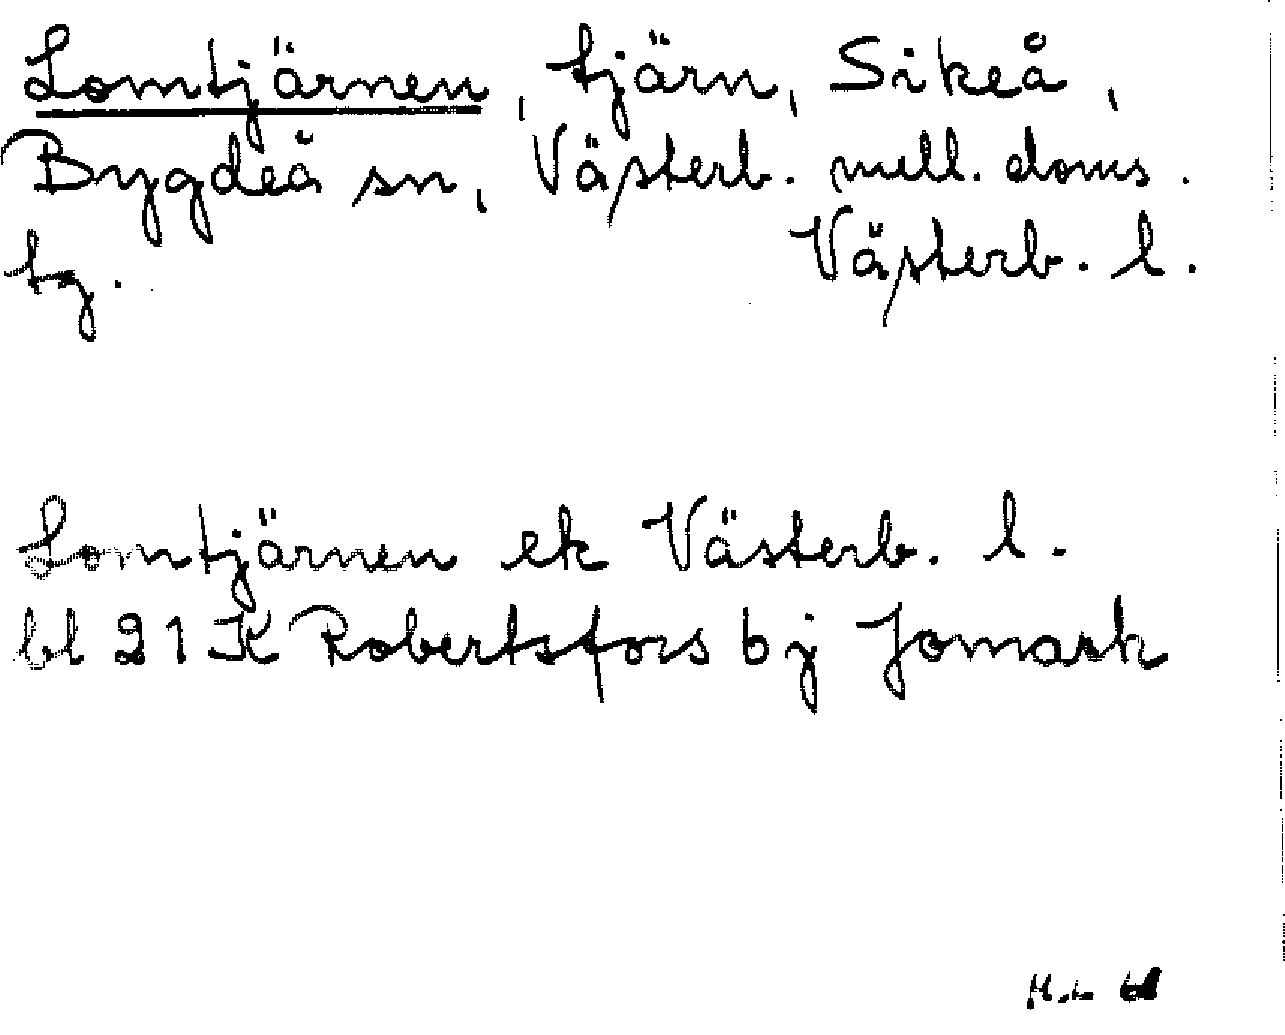 Lomtjärnen, tjärn, Sikeå,
Bygdeå sn, Västerb. mell. doms.
tg. Västerb. l.
Lomtjärnen ek Västerb. l.
bl 21 K Robertsfors bj Jomark